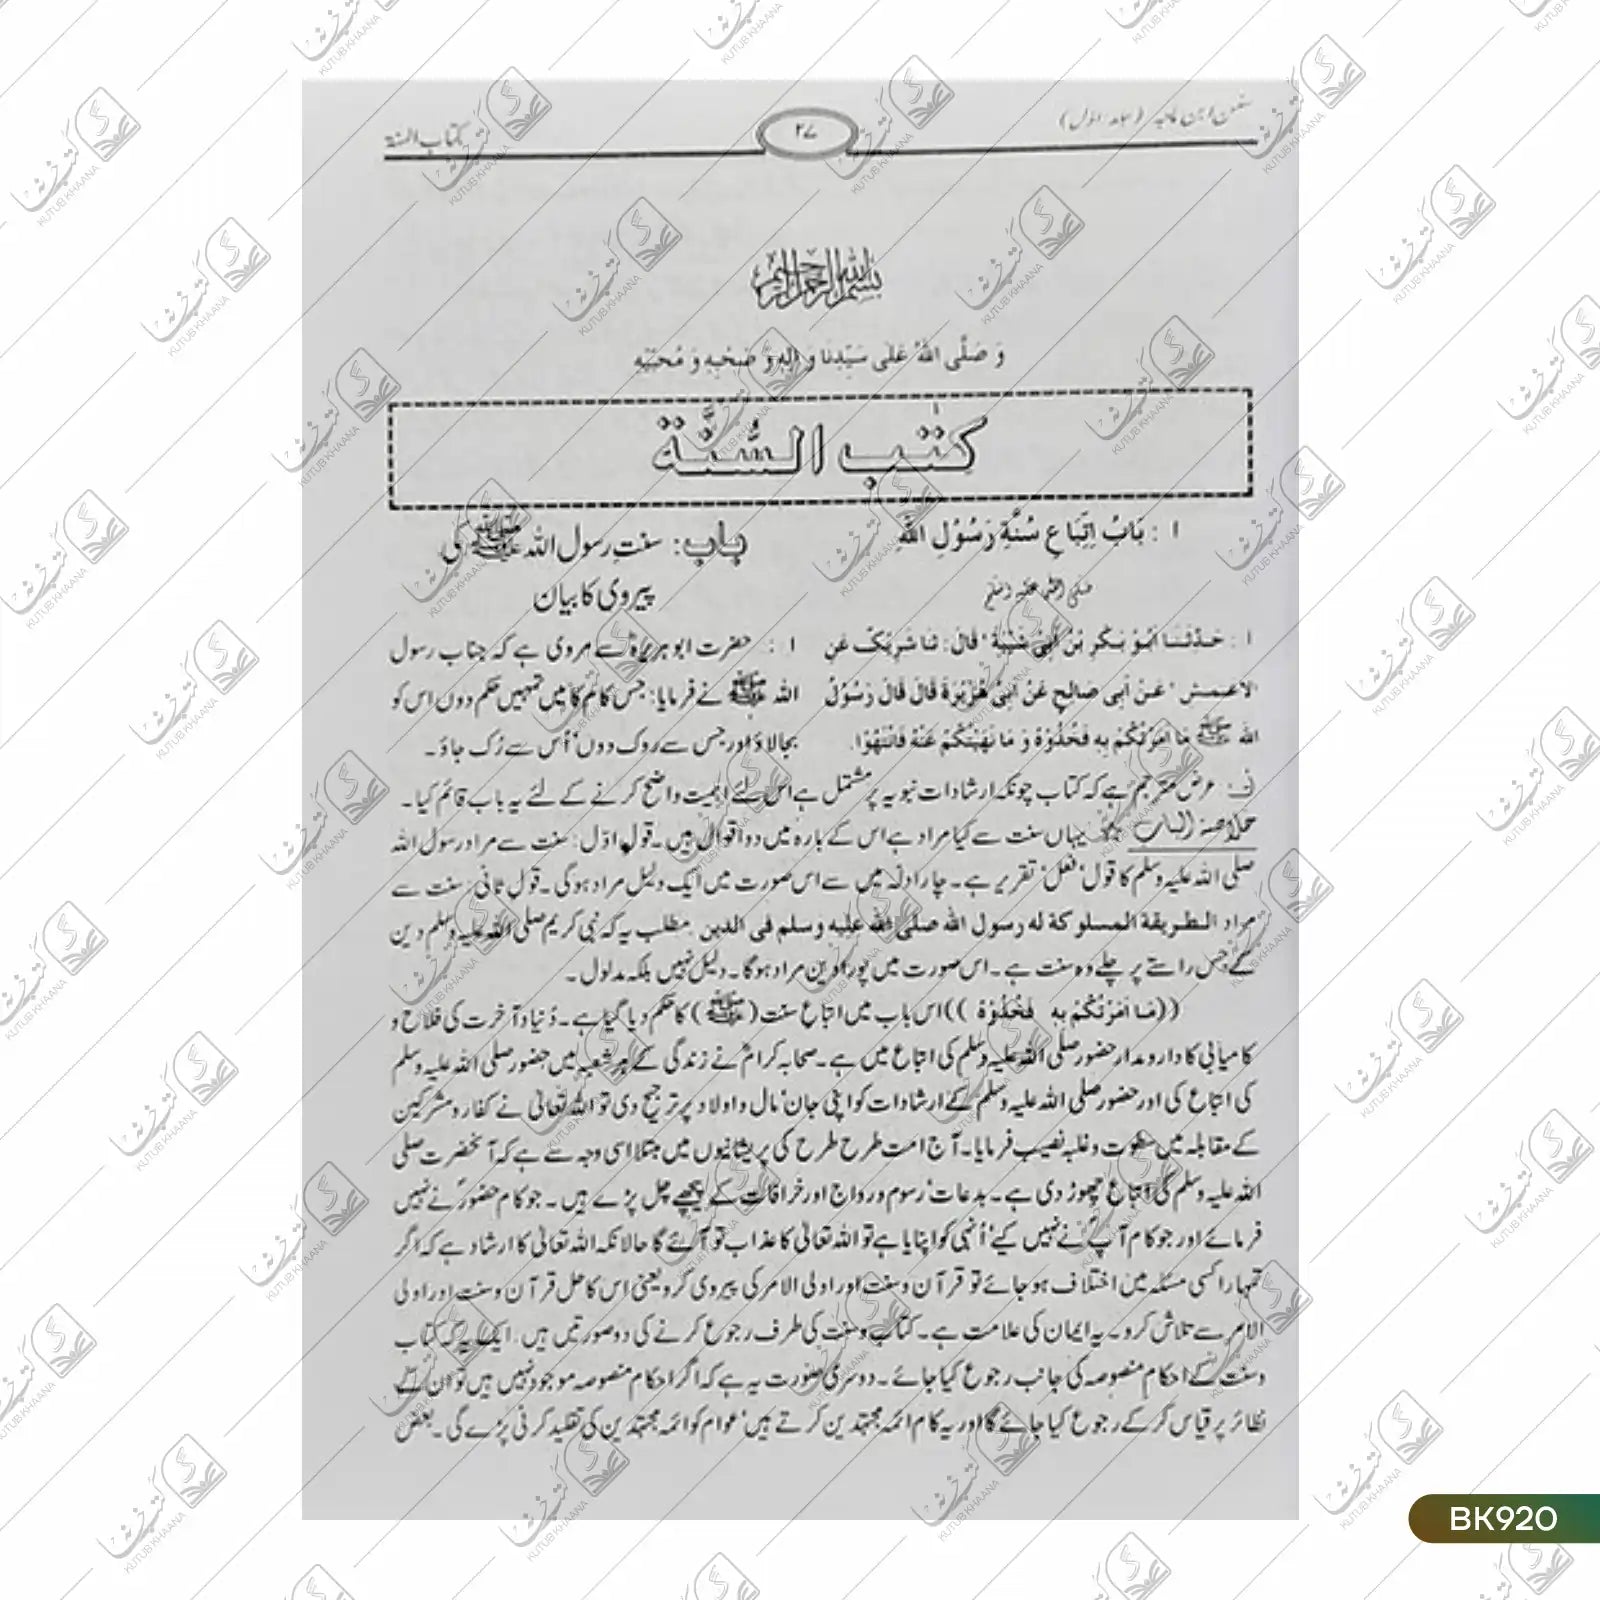 سنن ابن ماجہ (جلد اوّل)
۲۷
کتاب السنۃ
بسم الله الرحمن الرحيم
وَ صَلَّى اللهُ عَلٰى سَيِّدِنَا وَ اٰلِهٖ وَ صَحْبِهٖ وَ مُحِبِّيْهِ
كتٰب السُّنَّة
۱ : بَابُ اِتِّبَاعِ سُنَّةِ رَسُوْلِ اللهِ
صلی اللہ علیہ وسلم
۱ : حَدَّثَنَا اَبُوْ بَكْرِ بْنُ اَبِيْ شَيْبَةَ ' قَالَ : ثَنَا شَرِيْكٌ عَنِ
الاعمش ' عَنْ اَبِي صَالِحٍ عَنْ اَبِيْ هُرَيْرَةَ قَالَ قَالَ رَسُوْلُ
الله ﷺ مَا اَمَرْتُكُمْ بِهِ فَخُذُوْهُ وَ مَا نَهَيْتُكُمْ عَنْهُ فَانْتَهُوْا.
باب: سنت رسول اللہ ﷺ کی
پیروی کا بیان
۱ : حضرت ابو ہریرہؓ سے مروی ہے کہ جناب رسول
اللہ ﷺ نے فرمایا: جس کام کا میں تمہیں حکم دوں اس کو
بجا لاؤ اور جس سے روک دوں' اُس سے رُک جاؤ۔
ف: عرض مترجم ہے کہ کتاب چونکہ ارشادات نبویہ پر مشتمل ہے اس لئے اہمیت واضح کرنے کے لئے یہ باب قائم کیا۔
خلاصۃ الباب ☆ یہاں سنت سے کیا مراد ہے اس کے بارہ میں دو اقوال ہیں۔ قول اوّل: سنت سے مراد رسول اللہ
صلی اللہ علیہ وسلم کا قول' فعل' تقریر ہے۔ چار ادلہ میں سے اس صورت میں ایک دلیل مراد ہوگی۔ قول ثانی: سنت سے
مراد الطريقة المسلوكة له رسول الله صلى الله عليه وسلم فى الدين. مطلب یہ کہ نبی کریم صلی اللہ علیہ وسلم دین
کے جس راستے پر چلے وہ سنت ہے۔ اس صورت میں پورا دین مراد ہوگا۔ دلیل نہیں بلکہ مدلول۔
((مَا اَمَرْتُكُمْ بِهِ فَخُذُوْهُ)) اس باب میں اتباع سنت (ﷺ) کا حکم دیا گیا ہے۔ دُنیا و آخرت کی فلاح و
کامیابی کا دارومدار حضور صلی اللہ علیہ وسلم کی اتباع میں ہے۔ صحابہ کرامؓ نے زندگی کے ہر شعبہ میں حضور صلی اللہ علیہ وسلم
کی اتباع کی اور حضور صلی اللہ علیہ وسلم کے ارشادات کو اپنی جان' مال و اولاد پر ترجیح دی تو اللہ تعالیٰ نے کفار و مشرکین
کے مقابلہ میں سطوت و غلبہ نصیب فرمایا۔ آج امت طرح طرح کی پریشانیوں میں مبتلا اسی وجہ سے ہے کہ آنحضرت صلی
اللہ علیہ وسلم کی اتباع چھوڑ دی ہے۔ بدعات' رسوم و رواج اور خرافات کے پیچھے چل پڑے ہیں۔ جو کام حضورؐ نے نہیں
فرمائے اور جو کام آپؐ نے نہیں کیے' اُنہی کو اپنایا ہے تو اللہ تعالیٰ کا عذاب تو آئے گا حالانکہ اللہ تعالیٰ کا ارشاد ہے کہ اگر
تمہارا کسی مسئلہ میں اختلاف ہو جائے تو قرآن و سنت اور اولی الامر کی پیروی کرو یعنی اس کا حل قرآن و سنت اور اولی
الامر سے تلاش کرو۔ یہ ایمان کی علامت ہے۔ کتاب و سنت کی طرف رجوع کرنے کی دو صورتیں ہیں: ایک یہ کہ کتاب
و سنت کے احکام منصوصہ کی جانب رجوع کیا جائے۔ دوسری صورت یہ ہے کہ اگر احکام منصوصہ موجود نہیں ہیں تو ان کے
نظائر پر قیاس کر کے رجوع کیا جائے گا اور یہ کام ائمہ مجتہدین کرتے ہیں' عوام کو ائمہ مجتہدین کی تقلید کرنی پڑے گی۔ بعض
BK920
کتب خانہ
KUTUB KHAANA